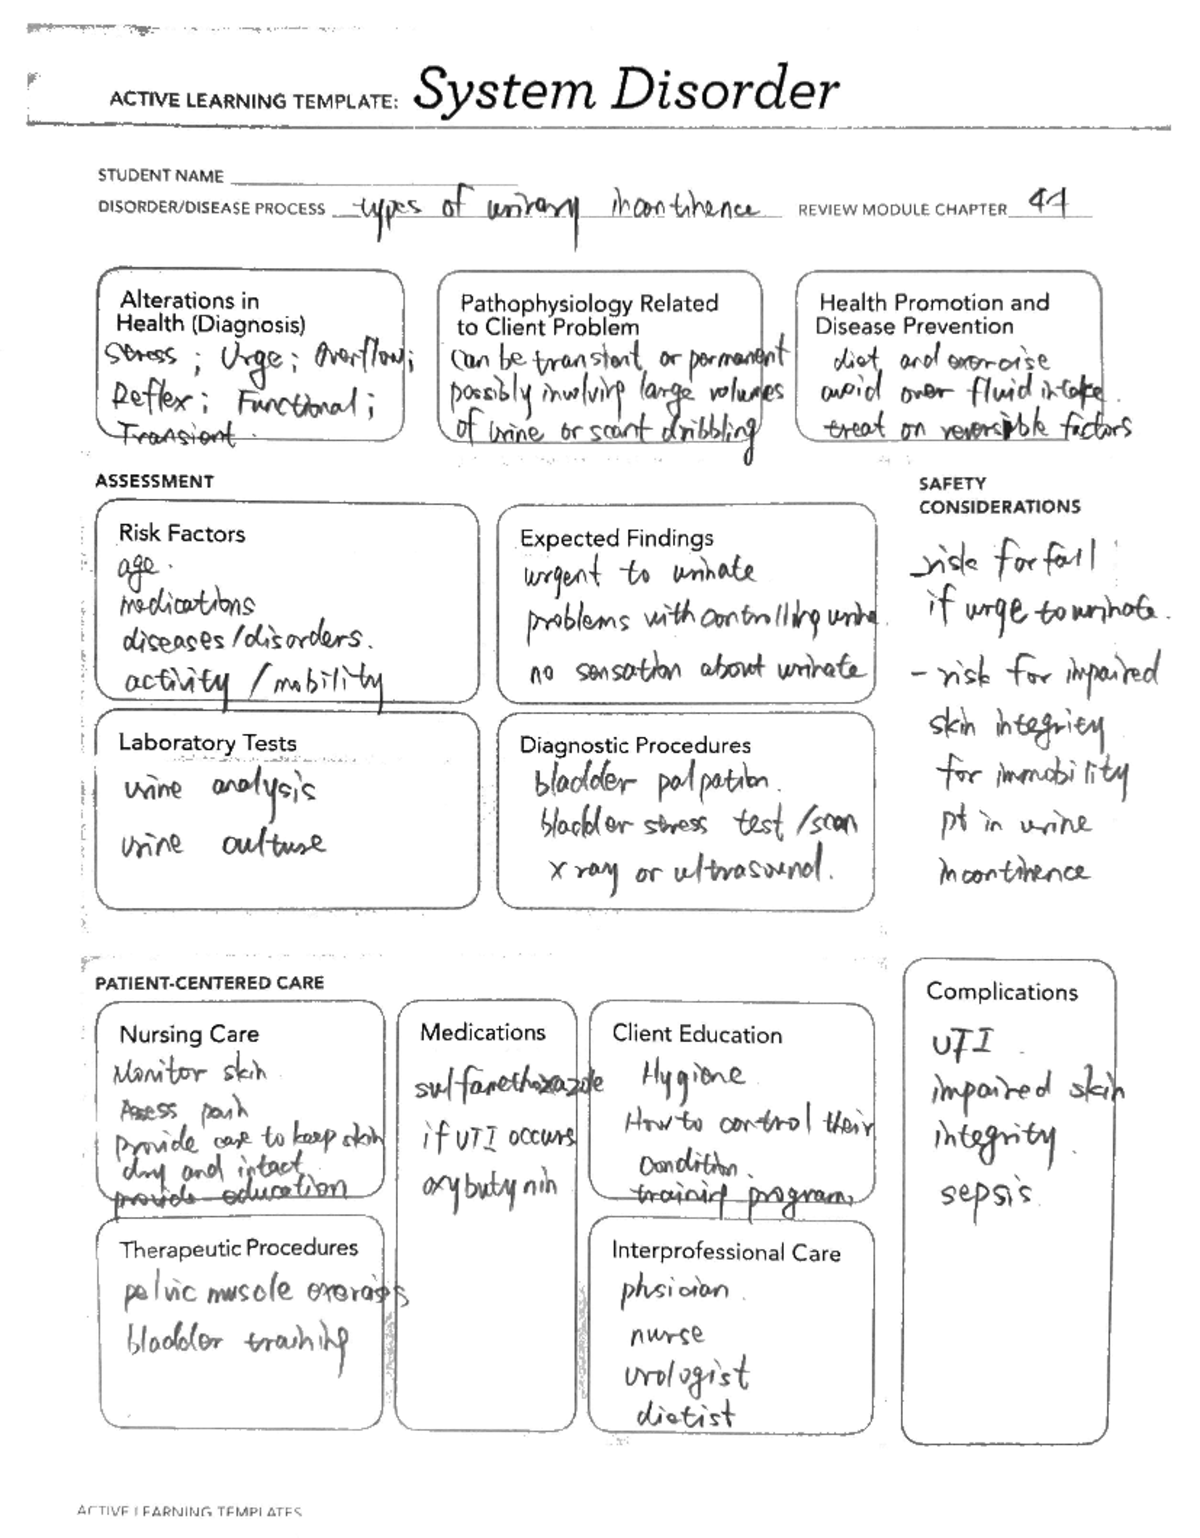 ACTIVE LEARNING TEMPLATE: System Disorder
STUDENT NAME
DISORDER/DISEASE PROCESS types of urinary incontinence REVIEW MODULE CHAPTER 44
Alterations in
Health (Diagnosis)
Stress ; Urge ; Overflow ;
Reflex ; Functional ;
Transient.
Pathophysiology Related
to Client Problem
can be transient or permanent
possibly involving large volumes
of urine or scant dribbling
Health Promotion and
Disease Prevention
diet and exercise
avoid over fluid intake.
treat on reversible factors
ASSESSMENT
SAFETY
CONSIDERATIONS
Risk Factors
age.
medications
diseases/disorders.
activity / mobility
Expected Findings
urgent to urinate
problems with controlling urine.
no sensation about urinate
- risk for fall
if urge to urinate.
- risk for impaired
skin integrity
for immobility
pt in urine
incontinence
Laboratory Tests
urine analysis
urine culture
Diagnostic Procedures
bladder palpation.
bladder stress test /scan
x ray or ultrasound.
PATIENT-CENTERED CARE
Nursing Care
Monitor skin
Assess pain
provide care to keep skin
dry and intact
provide education
Medications
sulfamethoxazole
if UTI occurs
oxybutynin
Client Education
Hygiene
How to control their
condition.
training program.
Complications
UTI
impaired skin
integrity.
sepsis.
Therapeutic Procedures
pelvic muscle exercises
bladder training
Interprofessional Care
phsician.
nurse
urologist
dietist
ACTIVE LEARNING TEMPLATES